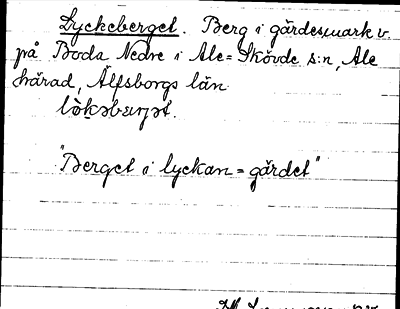 Lyckeberget. Berg i gärdesmark v.
på Boda Nedre i Ale=Skövde s:n, Ale
härad, Älfsborgs län.
"Berget i lyckan = gärdet"